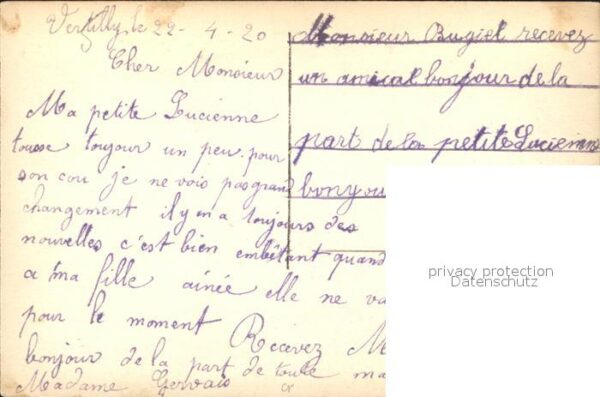 Vertilly le 22-4-20
Cher Monsieur
Ma petite Lucienne
tousse toujour un peu. pour
son cou je ne vois pas gran
changement il y en a toujours des
nouvelles c'est bien embêtant quand
a ma fille ainée elle ne va
pour le moment
Recevez M
bonjour de la part de toute ma
Madame Gervais
Monsieur Bugiel recevez
un amical bonjour de la
part de la petite Lucienne
bonyou
privacy protection
Datenschutz